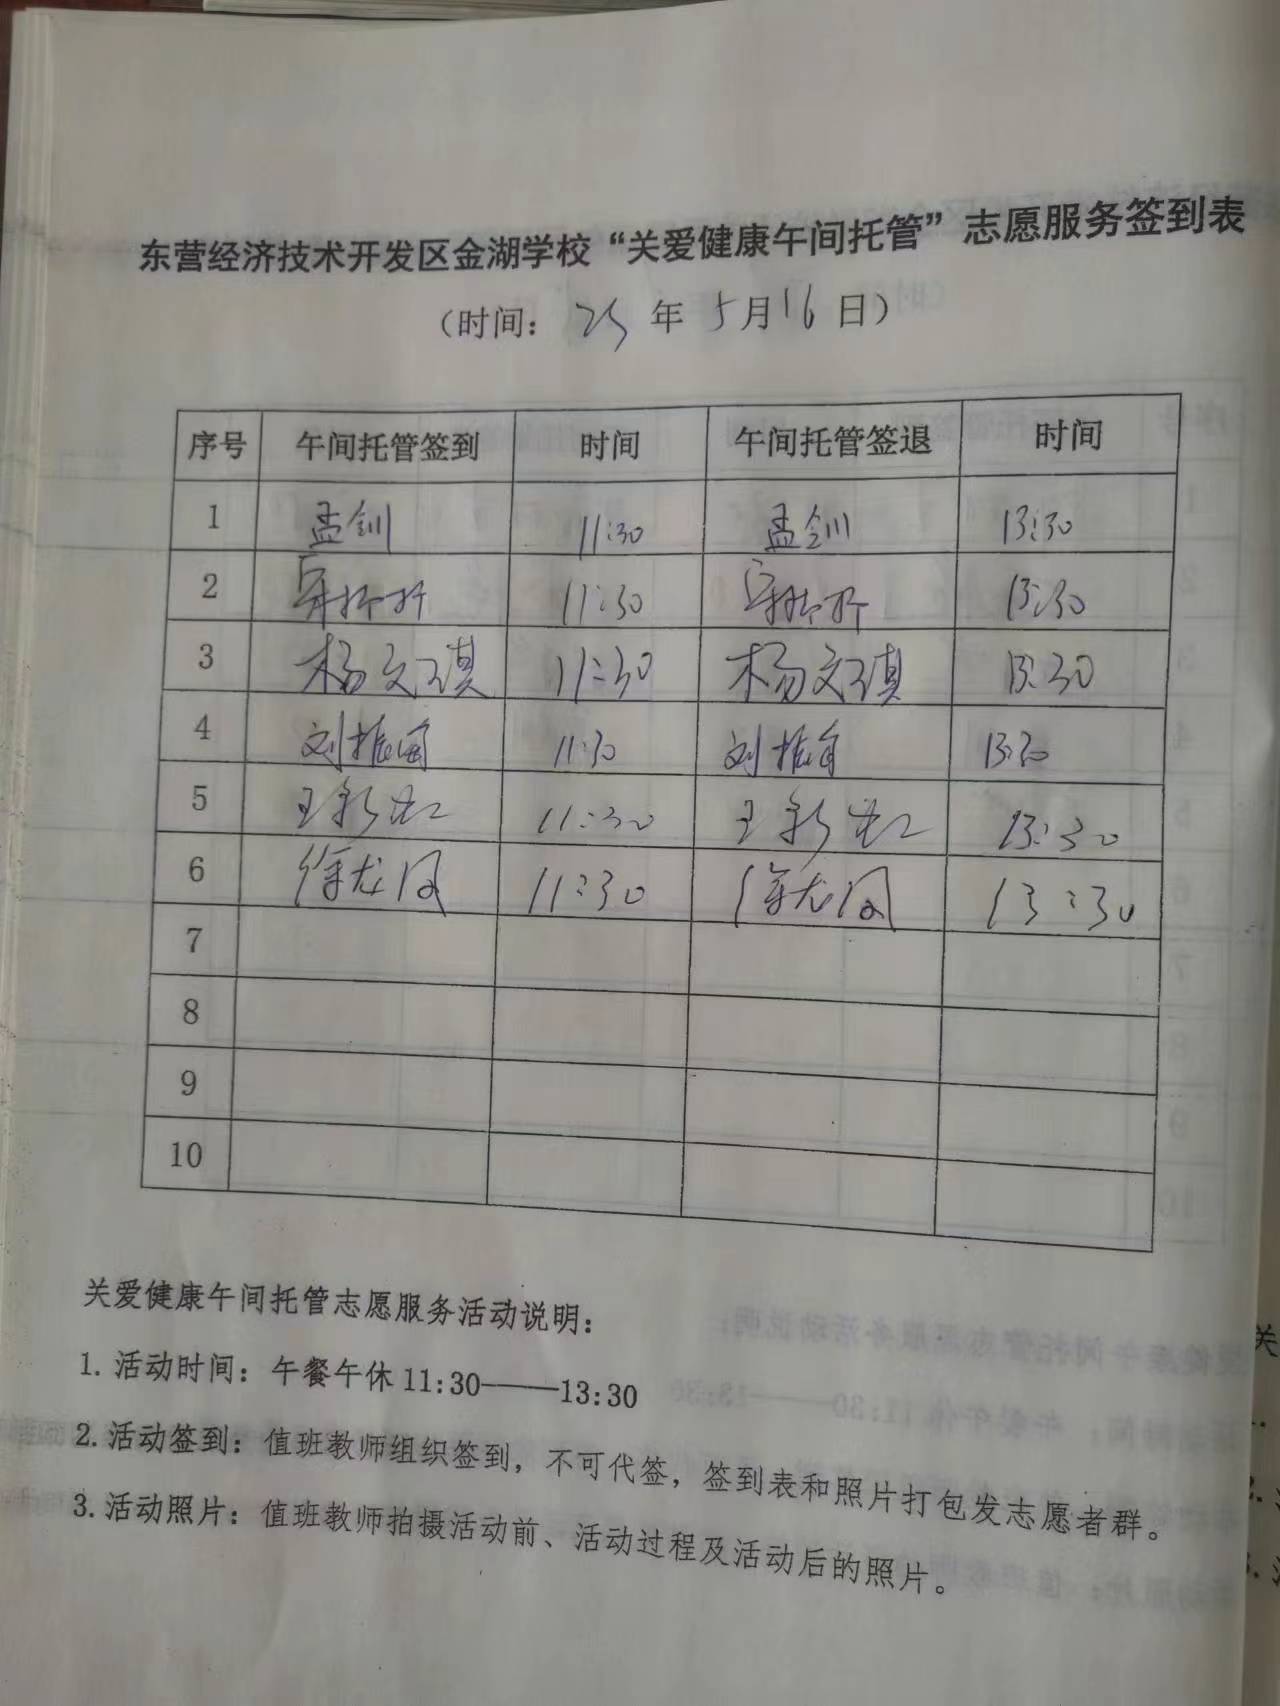 东营经济技术开发区金湖学校“关爱健康午间托管”志愿服务签到表
（时间：25年5月16日）
序号 午间托管签到 时间 午间托管签退 时间
1 孟钏 11:30 孟钏 13:30
2 11:30 13:30
3 杨文琪 11:30 杨文琪 13:30
4 刘振 11:30 刘振 13:30
5 王彩虹 11:30 王彩虹 13:30
6 徐龙凤 11:30 徐龙凤 13:30
7
8
9
10
关爱健康午间托管志愿服务活动说明：
1. 活动时间：午餐午休 11:30——13:30
2. 活动签到：值班教师组织签到，不可代签，签到表和照片打包发志愿者群。
3. 活动照片：值班教师拍摄活动前、活动过程及活动后的照片。